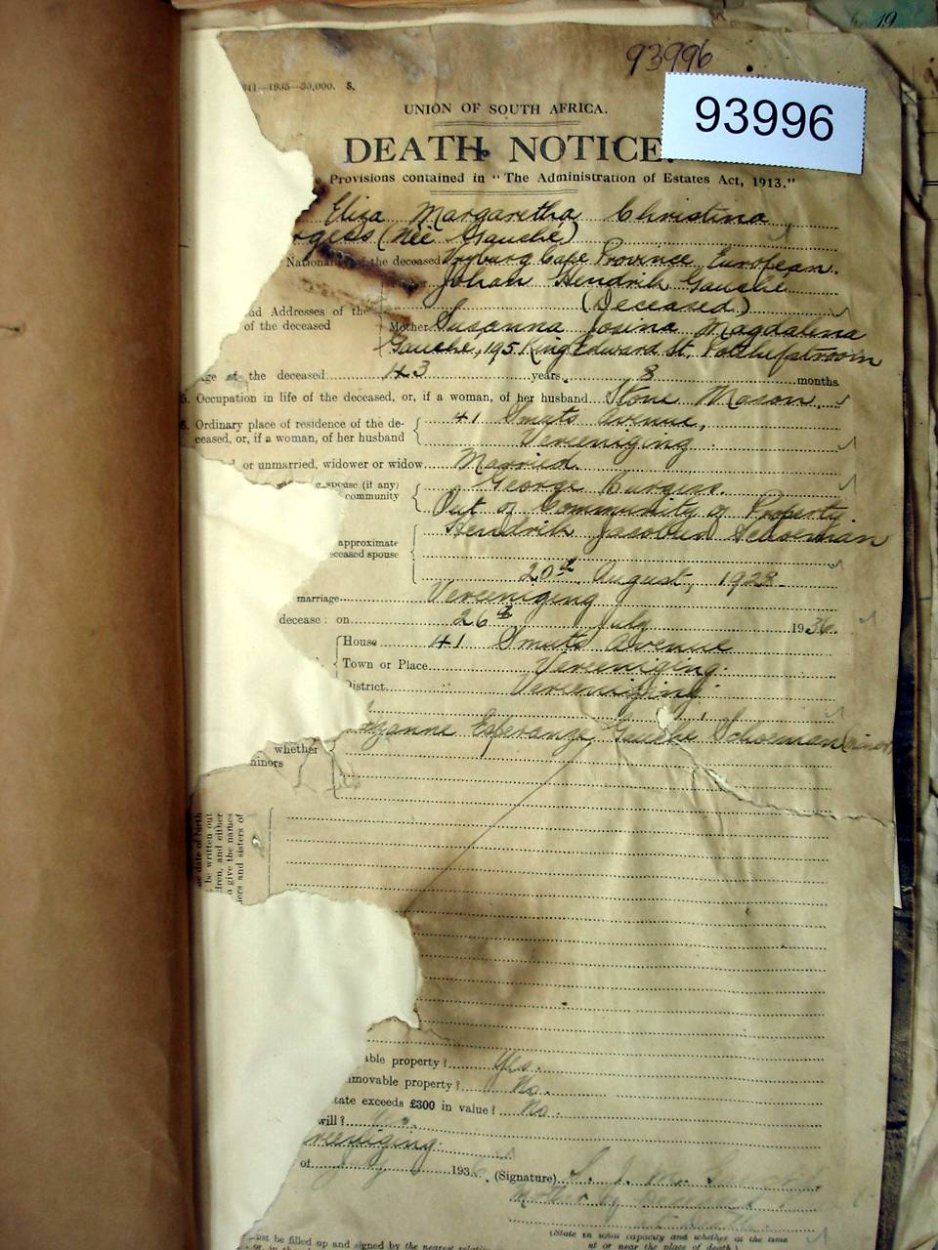 19
93996
93996
1935—30,000. S.
UNION OF SOUTH AFRICA.
DEATH NOTICE.
Provisions contained in "The Administration of Estates Act, 1913."
Eliza Margaretha Christina
gess (née Gauché)
Nationality of the deceased Vryburg Cape Province European.
Johan Hendrik Gauché
(Deceased)
nd Addresses of the
of the deceased
Mother Susanna Josina Magdalena
Gauché, 195 King Edward St, Potchefstroom
ge of the deceased 43 years 8 months
5. Occupation in life of the deceased, or, if a woman, of her husband Stone Mason
6. Ordinary place of residence of the de-
ceased, or, if a woman, of her husband
41 Smuts Avenue,
Vereeniging
or unmarried, widower or widow Married
spouse (if any)
community
George Burgess.
Out of Community of Property.
approximate
eceased spouse
Hendrik Jacobus Schoeman
20th August, 1928
marriage Vereeniging
decease: on 26th July 1936.
House 41 Smuts Avenue
Town or Place Vereeniging.
District Vereeniging.
zanne Esperanza Gauché Schoeman (minor)
whether
minors
date of birth
be written out
dren, and either
a give the names
ers and sisters of
able property? Yes.
mmovable property? No.
tate exceeds £300 in value? No.
will?
reeniging.
of 193 (Signature) S. J. M.
mother of deceased
(State in what capacity and whether at the time
at or near the place of death
ust be filled up and signed by the nearest relati